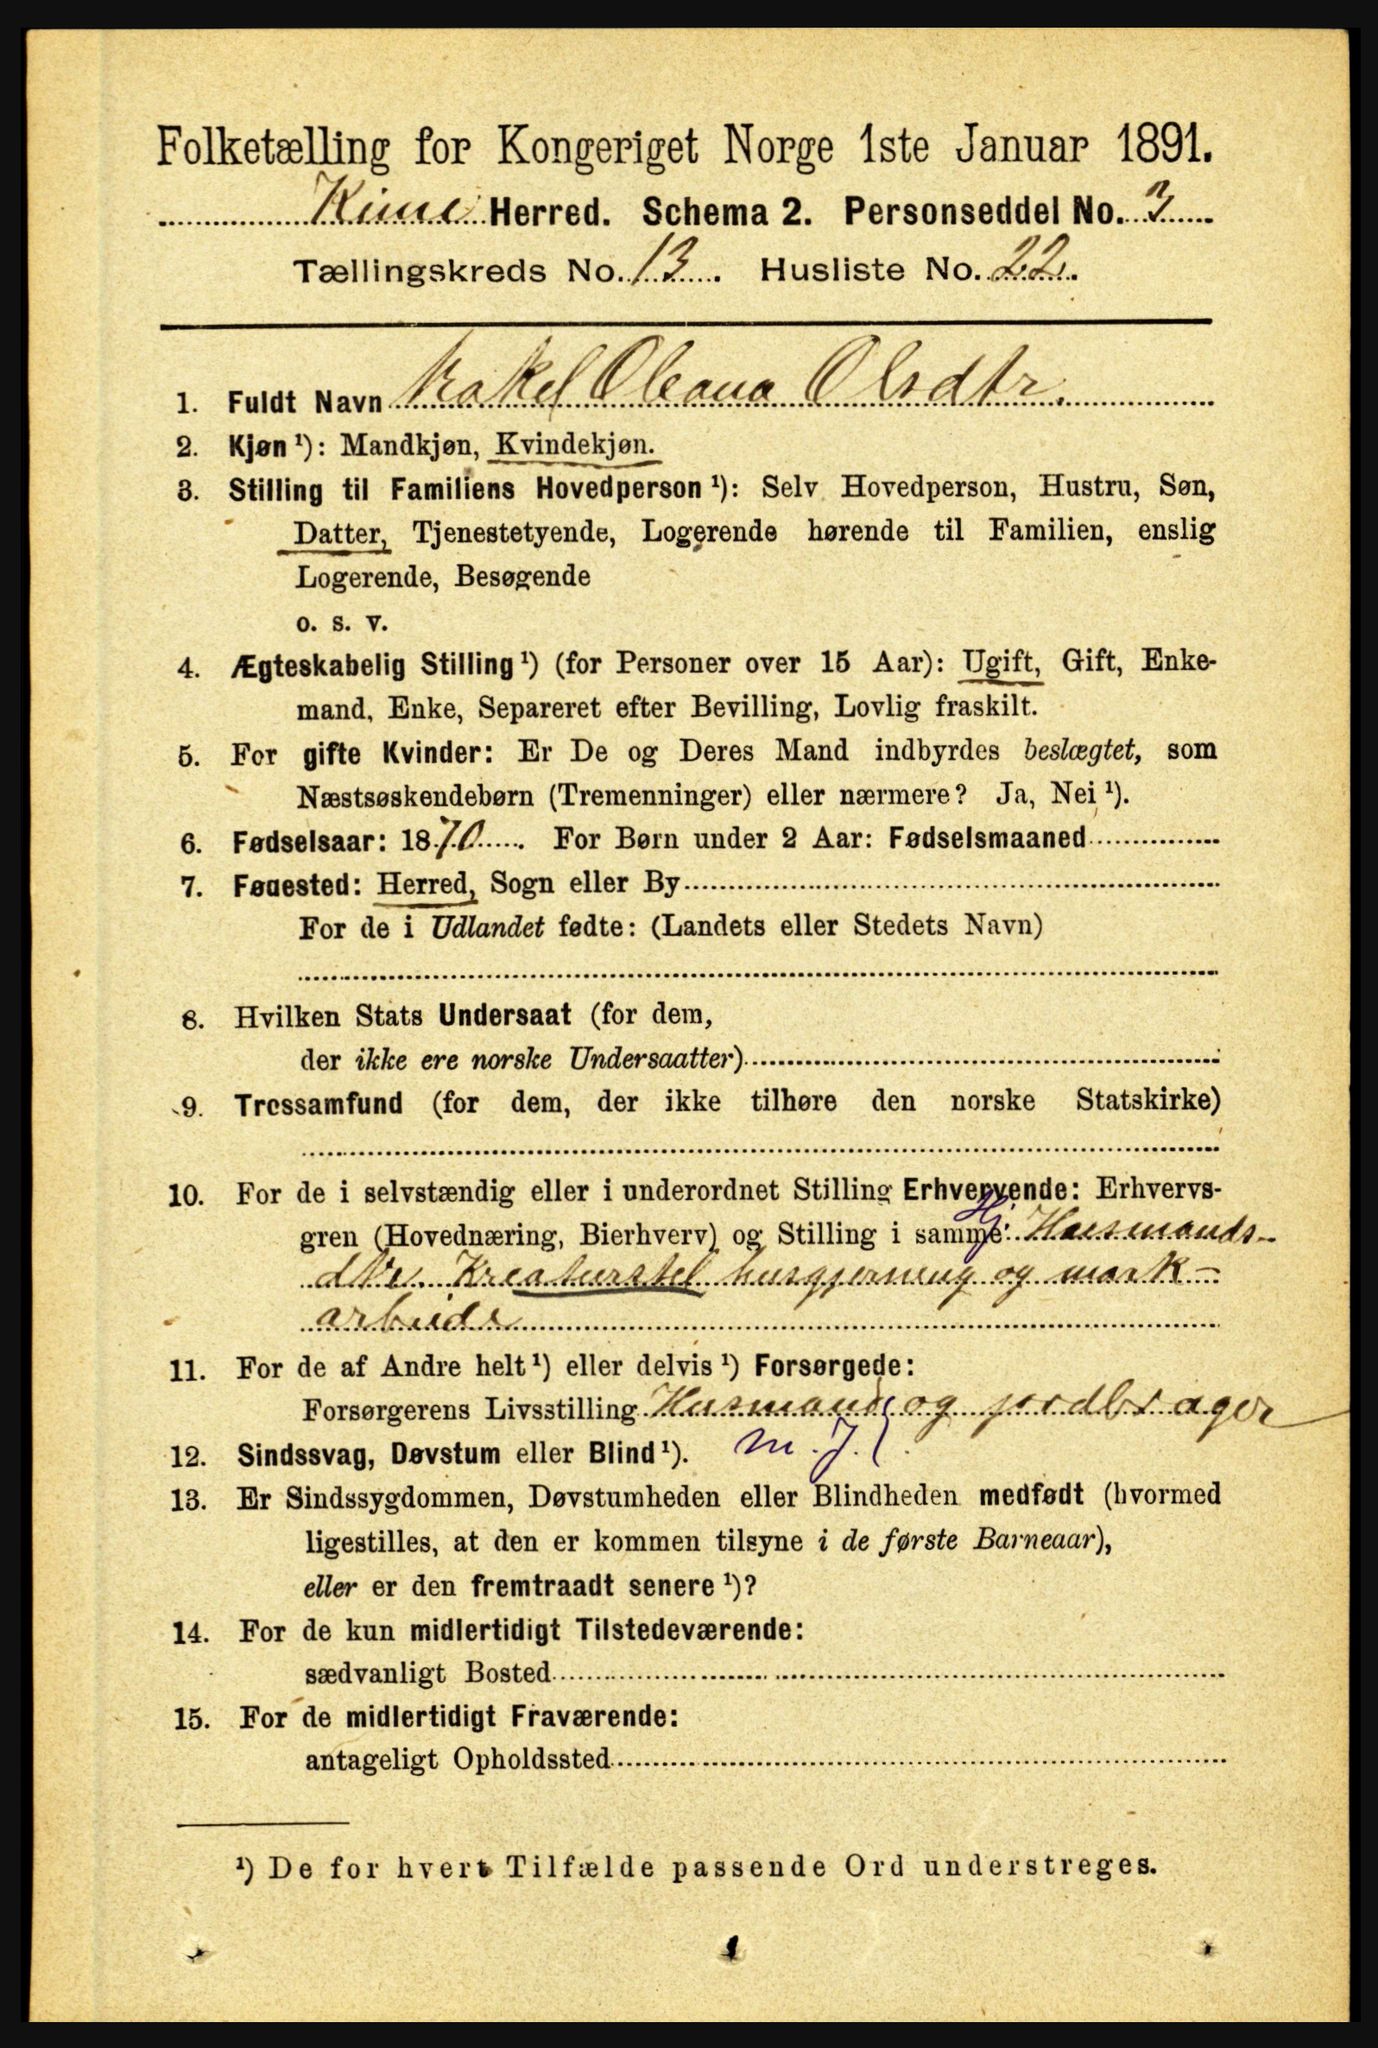 Folketælling for Kongeriget Norge 1ste Januar 1891.
Kinn Herred. Schema 2. Personseddel No. 3
Tællingskreds No. 13. Husliste No. 22.
1. Fuldt Navn Rakel Oleana Olsdtr.
2. Kjøn ¹): Mandkjøn, Kvindekjøn.
3. Stilling til Familiens Hovedperson ¹): Selv Hovedperson, Hustru, Søn,
Datter, Tjenestetyende, Logerende hørende til Familien, enslig
Logerende, Besøgende
o. s. v.
4. Ægteskabelig Stilling ¹) (for Personer over 15 Aar): Ugift, Gift, Enke-
mand, Enke, Separeret efter Bevilling, Lovlig fraskilt.
5. For gifte Kvinder: Er De og Deres Mand indbyrdes beslægtet, som
Næstsøskendebørn (Tremenninger) eller nærmere? Ja, Nei ¹).
6. Fødselsaar: 1870. For Børn under 2 Aar: Fødselsmaaned
7. Føuested: Herred, Sogn eller By
For de i Udlandet fødte: (Landets eller Stedets Navn)
8. Hvilken Stats Undersaat (for dem,
der ikke ere norske Undersaatter)
9. Trossamfund (for dem, der ikke tilhøre den norske Statskirke)
10. For de i selvstændig eller i underordnet Stilling Erhvervende: Erhvervs-
gren (Hovednæring, Bierhverv) og Stilling i samme: Hj. Husmands-
dtr. Kreaturstel husgjerning og mark-
arbeide
11. For de af Andre helt ¹) eller delvis ¹) Forsørgede:
Forsørgerens Livsstilling Husmand og jordbrager
12. Sindssvag, Døvstum eller Blind ¹). m. J.
13. Er Sindssygdommen, Døvstumheden eller Blindheden medfødt (hvormed
ligestilles, at den er kommen tilsyne i de første Barneaar),
eller er den fremtraadt senere ¹)?
14. For de kun midlertidigt Tilstedeværende:
sædvanligt Bosted
15. For de midlertidigt Fraværende:
antageligt Opholdssted
¹) De for hvert Tilfælde passende Ord understreges.